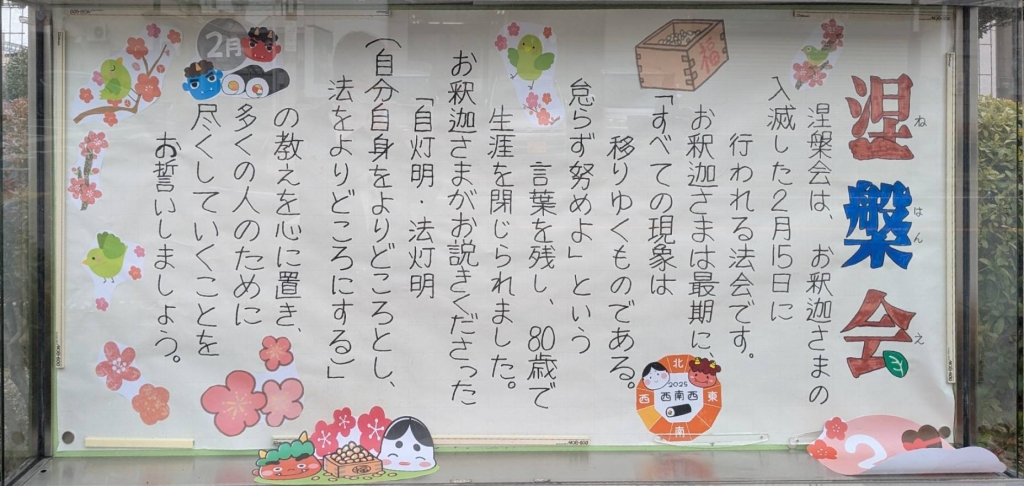 涅槃会
ねはんえ
涅槃会は、お釈迦さまの
入滅した2月15日に
行われる法会です。
お釈迦さまは最期に、
「すべての現象は
移りゆくものである。
怠らず努めよ」という
言葉を残し、80歳で
生涯を閉じられました。
お釈迦さまがお説きくださった
「自灯明・法灯明
(自分自身をよりどころとし、
法をよりどころにする)」
の教えを心に置き、
多くの人のために
尽くしていくことを
お誓いしましょう。
福
2月
北
2025
西
西南西
東
南
2